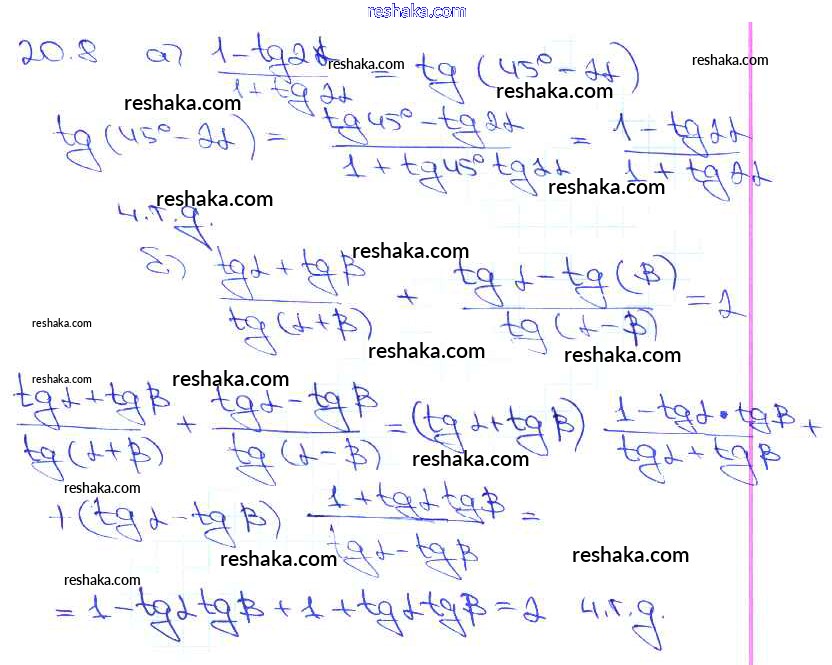 reshaka.com
20.8 а) (1 - tg2α)/(1 + tg2α) = tg(45° - 2α)
reshaka.com reshaka.com
reshaka.com reshaka.com
tg(45° - 2α) = (tg45° - tg2α)/(1 + tg45° tg2α) = (1 - tg2α)/(1 + tg2α)
reshaka.com reshaka.com
ч.т.д.
reshaka.com
б) (tgα + tgβ)/(tg(α + β)) + (tgα - tg(β))/(tg(α - β)) = 2
reshaka.com
reshaka.com reshaka.com
reshaka.com reshaka.com
(tgα + tgβ)/(tg(α + β)) + (tgα - tgβ)/(tg(α - β)) = (tgα + tgβ) (1 - tgα · tgβ)/(tgα + tgβ) +
reshaka.com
reshaka.com
+ (tgα - tgβ) (1 + tgα tgβ)/(tgα - tgβ) =
reshaka.com reshaka.com
reshaka.com
= 1 - tgα tgβ + 1 + tgα tgβ = 2 ч.т.д.
reshaka.com reshaka.com